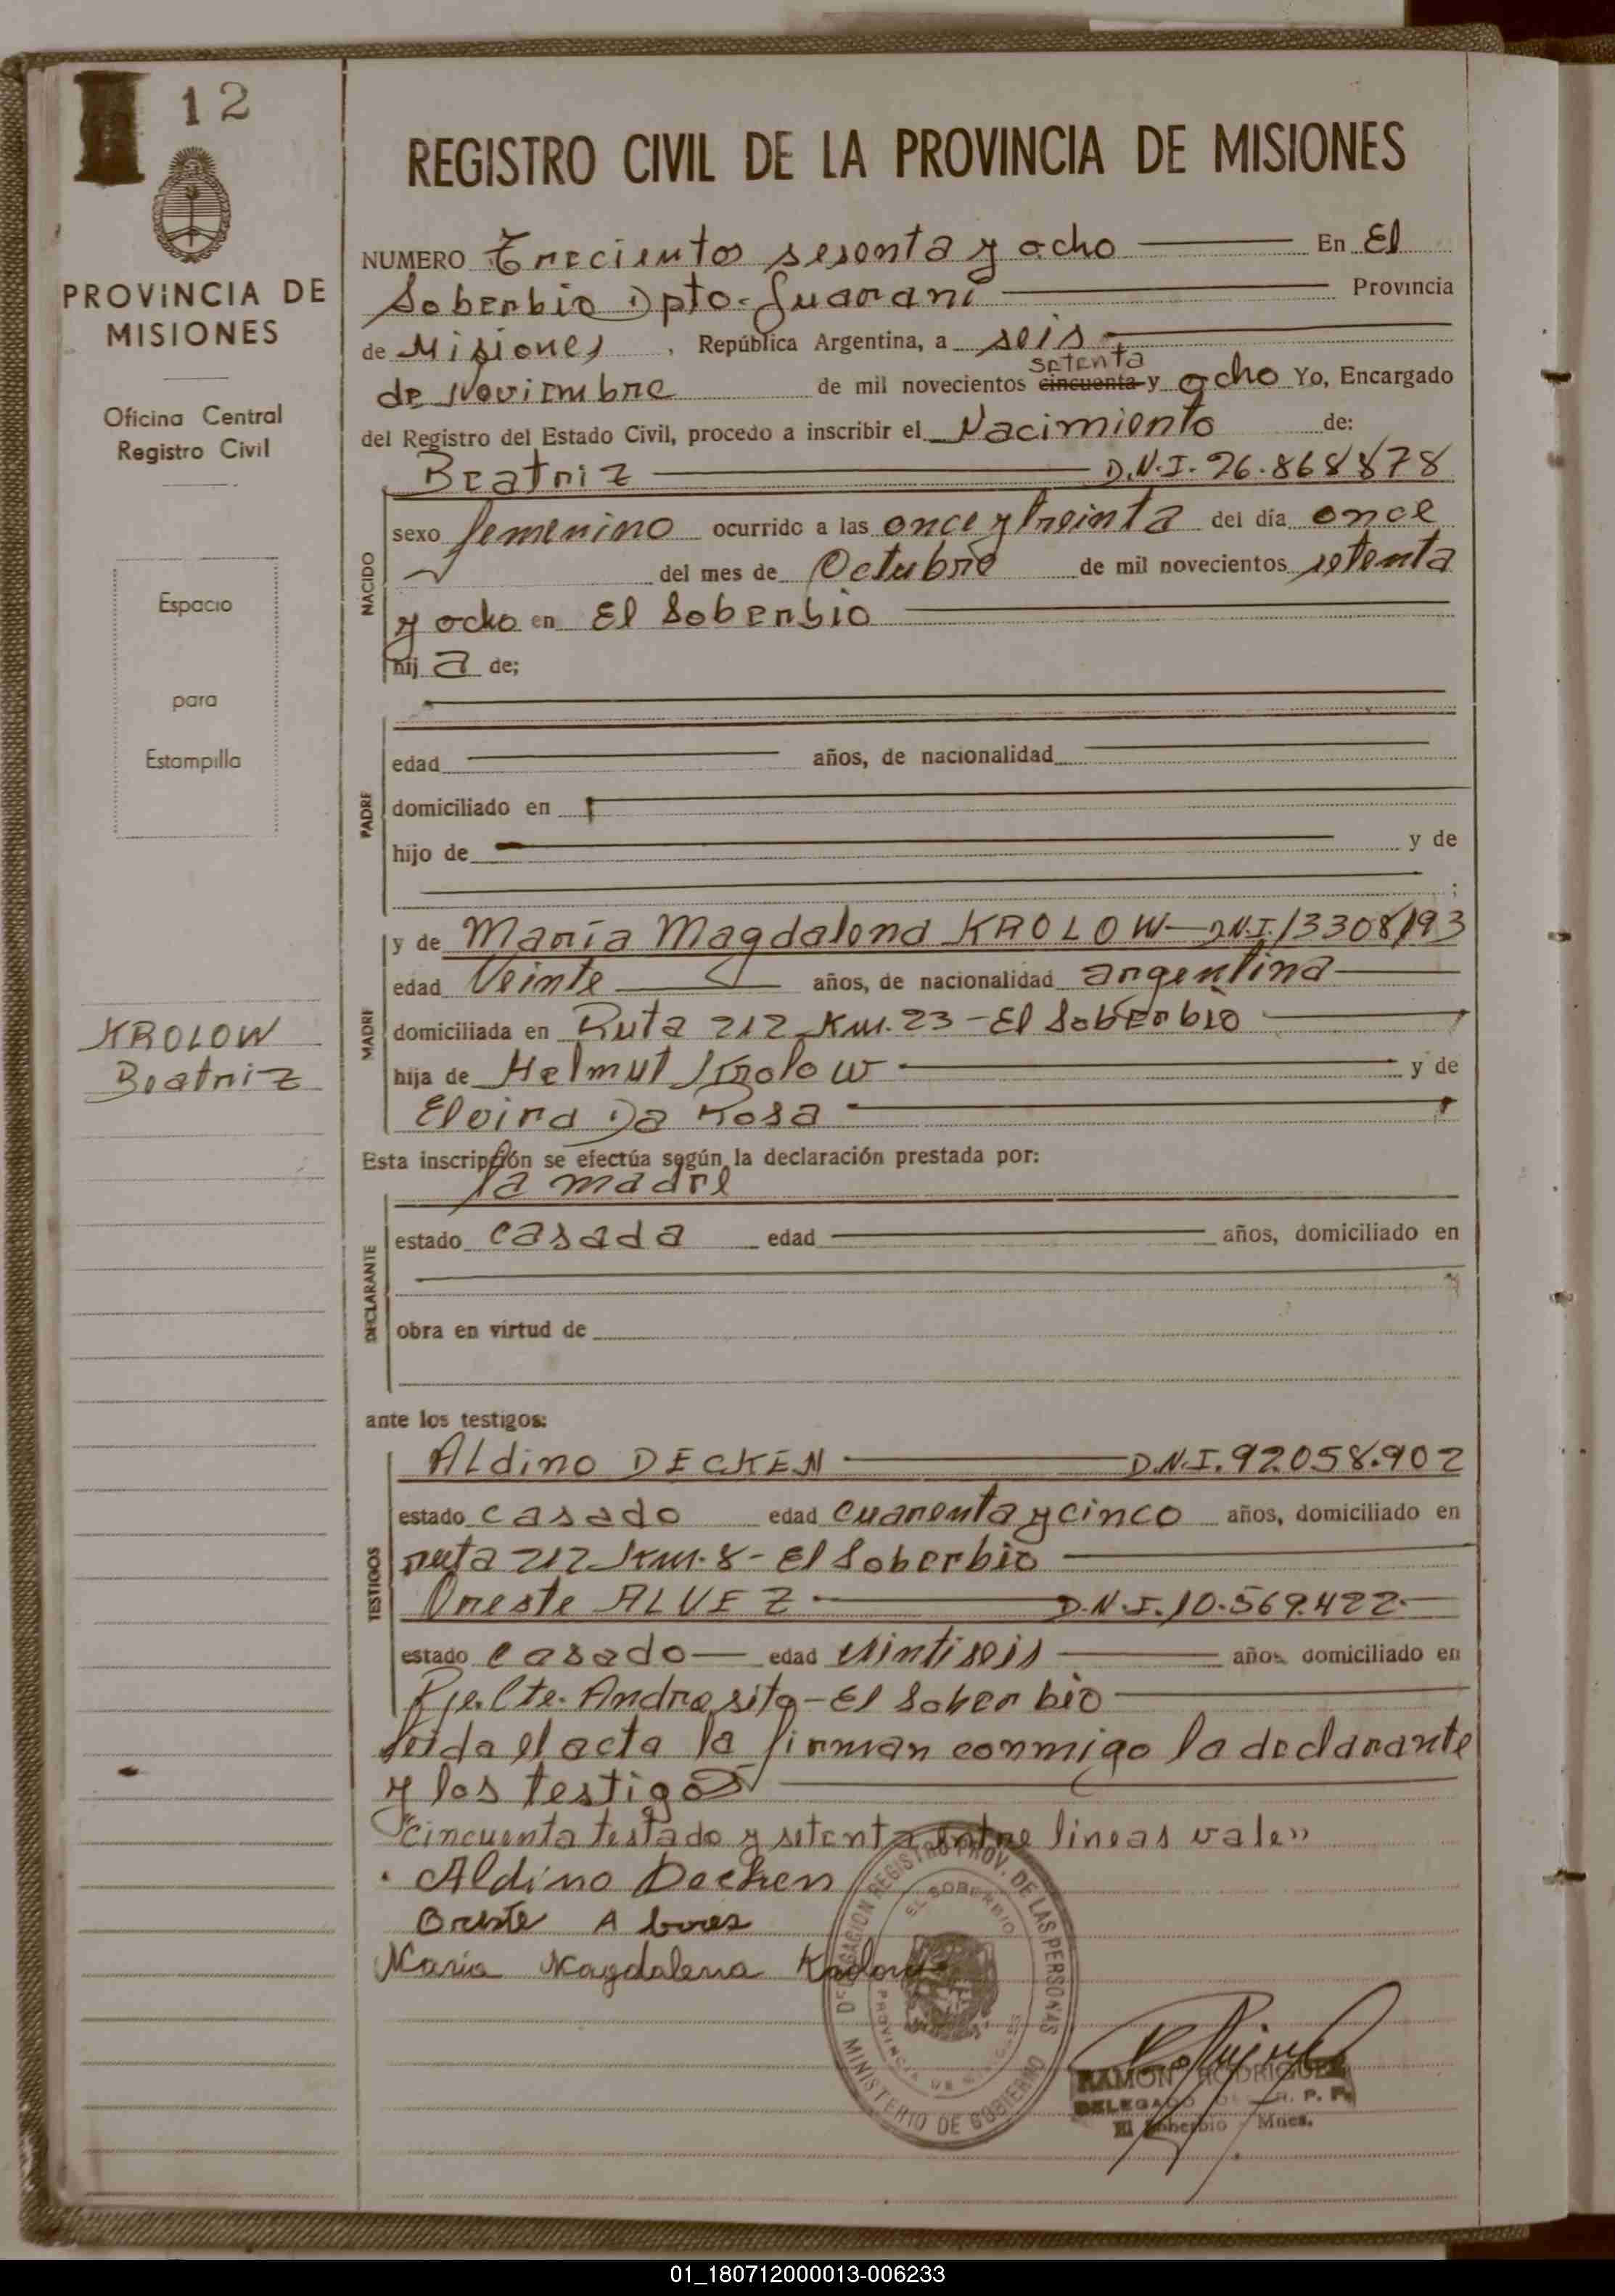 12
PROVINCIA DE
MISIONES
Oficina Central
Registro Civil
Espacio
para
Estampilla
KROLOW
Beatriz
REGISTRO CIVIL DE LA PROVINCIA DE MISIONES
NUMERO Treciento sesenta y ocho En El
Soberbio Dpto. Guarani Provincia
de Misiones, República Argentina, a seis
setenta
de Noviembre de mil novecientos cincuenta y ocho Yo, Encargado
del Registro del Estado Civil, procedo a inscribir el Nacimiento de:
Beatriz D.N.I. 26.868878
NACIDO
sexo femenino ocurrido a las once y treinta del día once
del mes de Octubre de mil novecientos setenta
y ocho en El Soberbio
hij a de;
PADRE
edad años, de nacionalidad
domiciliado en
hijo de y de
;
MADRE
y de María Magdalena KROLOW D.N.I. 13308193
edad Veinte años, de nacionalidad argentina
domiciliada en Ruta 212 Km. 23 - El Soberbio
hija de Helmut Krolow y de
Elvira Da Rosa
Esta inscripción se efectúa según la declaración prestada por:
la madre
DECLARANTE
estado casada edad años, domiciliado en
obra en virtud de
ante los testigos:
TESTIGOS
Aldino DECKEN D.N.I. 92.058.902
estado casado edad cuarenta y cinco años, domiciliado en
ruta 212 Km. 8 - El Soberbio
Oreste ALVEZ D.N.I. 10.569.422.
estado casado edad vintiseis años, domiciliado en
Pje. Cte. Andresito - El Soberbio
leida el acta la firman conmigo la declarante
y los testigos
"cincuenta testado y setenta entre lineas vale"
Aldino Decken
Oreste
Maria Magdalena Krolow
DELEGACION REGISTRO PROV. DE LAS PERSONAS
EL SOBERBIO
PROVINCIA DE MISIONES
MINISTERIO DE GOBIERNO
RAMON RODRIGUEZ
DELEGADO R. P. P.
El Soberbio Mnes.
01_180712000013-006233